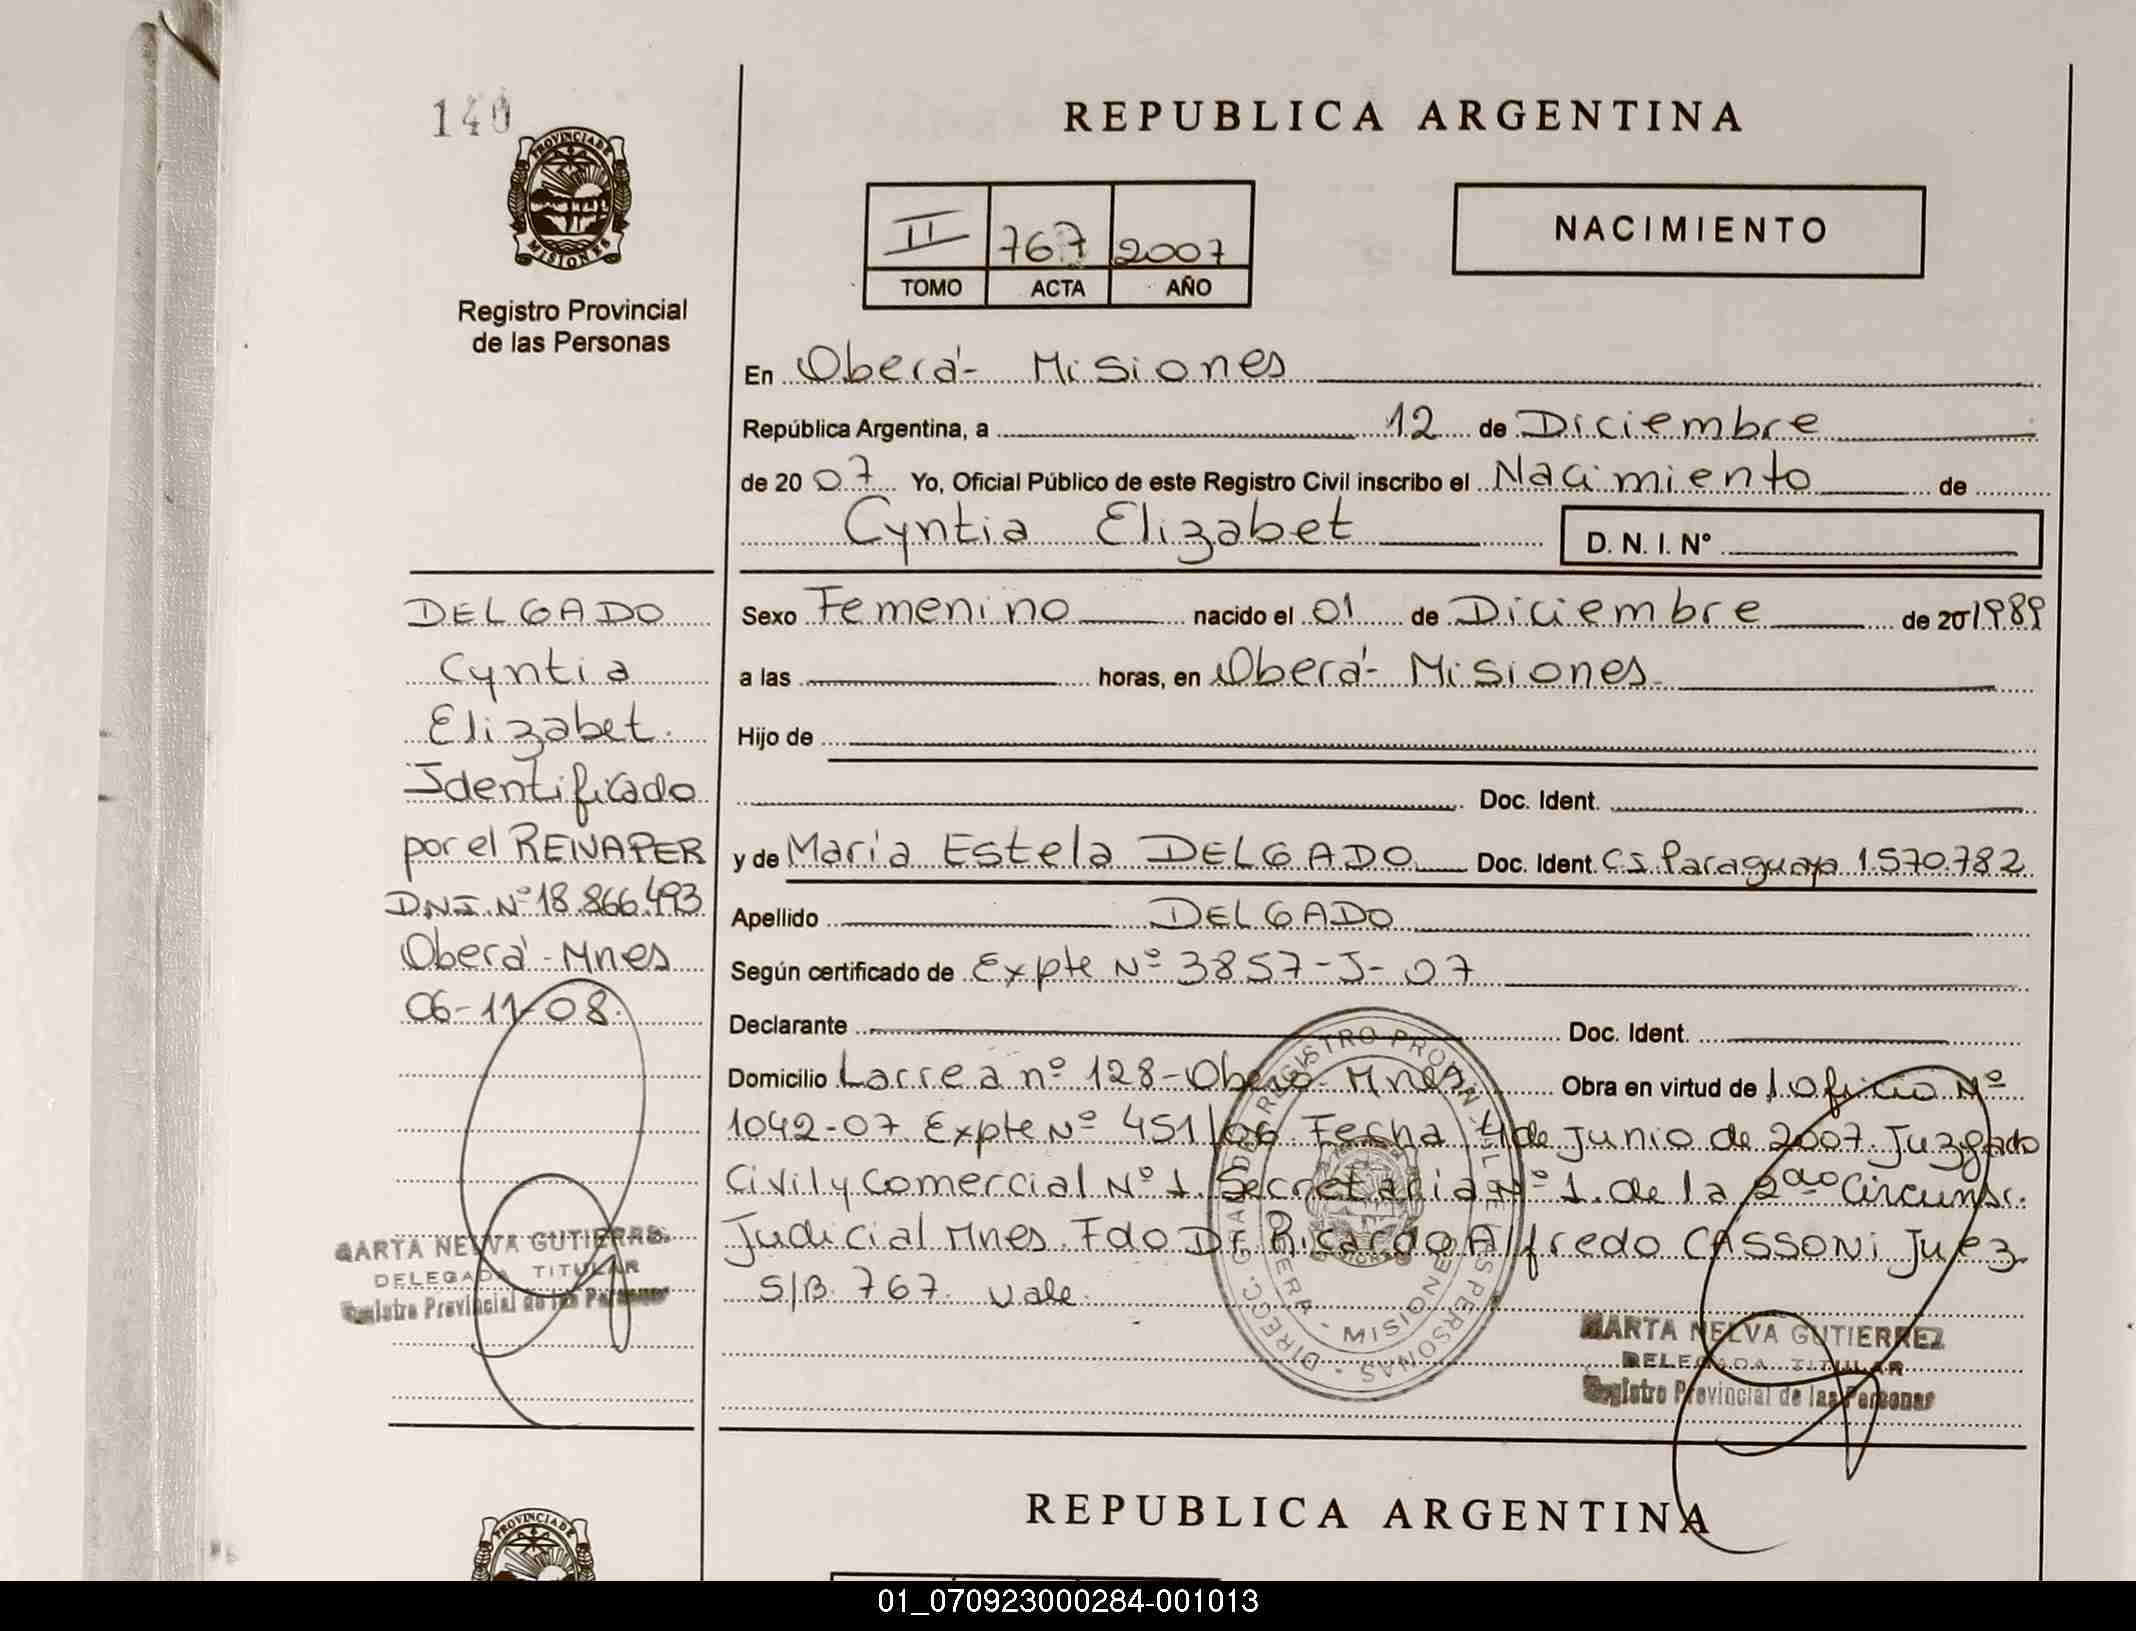 140
PROVINCIA DE
MISIONES
Registro Provincial
de las Personas
REPUBLICA ARGENTINA
II 767 2007
TOMO ACTA AÑO
NACIMIENTO
En Oberá- Misiones
República Argentina, a 12 de Diciembre
de 2007 Yo, Oficial Público de este Registro Civil inscribo el Nacimiento de
Cyntia Elizabet D. N. I. Nº
Sexo Femenino nacido el 01 de Diciembre de 20 1989
a las horas, en Oberá- Misiones
Hijo de
Doc. Ident.
y de Maria Estela DELGADO Doc. Ident. C.I. Paraguaya 1.570.782
Apellido DELGADO
Según certificado de Expte Nº 3857-J-07
Declarante Doc. Ident.
Domicilio Larrea nº 128-Oberá- Mnes. Obra en virtud de Oficio Nº
1042-07 Expte Nº 451/06 Fecha 4 de Junio de 2007. Juzgado
Civil y Comercial Nº 1. Secretaria Nº 1. de la 2da Circunsc.
Judicial Mnes. Fdo Dr Ricardo Alfredo CASSONI Juez
S/B. 767. Vale.
DELGADO
Cyntia
Elizabet.
Identificado
por el RENAPER
DNI. Nº 18.866.493
Oberá - Mnes
06-11-08.
MARTA NELVA GUTIERREZ
DELEGADA TITULAR
Registro Provincial de las Personas
MARTA NELVA GUTIERREZ
DELEGADA TITULAR
Registro Provincial de las Personas
PROVINCIA DE
REPUBLICA ARGENTINA
01_070923000284-001013